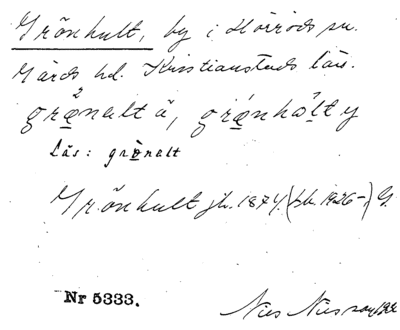 Grönhult, by i Hörröds sn.
Gärds hd. Kristianstads län.
grønalt å, grønhölt y
Läs: grønalt
Grönhult jb. 1874. (Lb. 1926-) G.
Nr 5333.
Nils Nilsson 1922